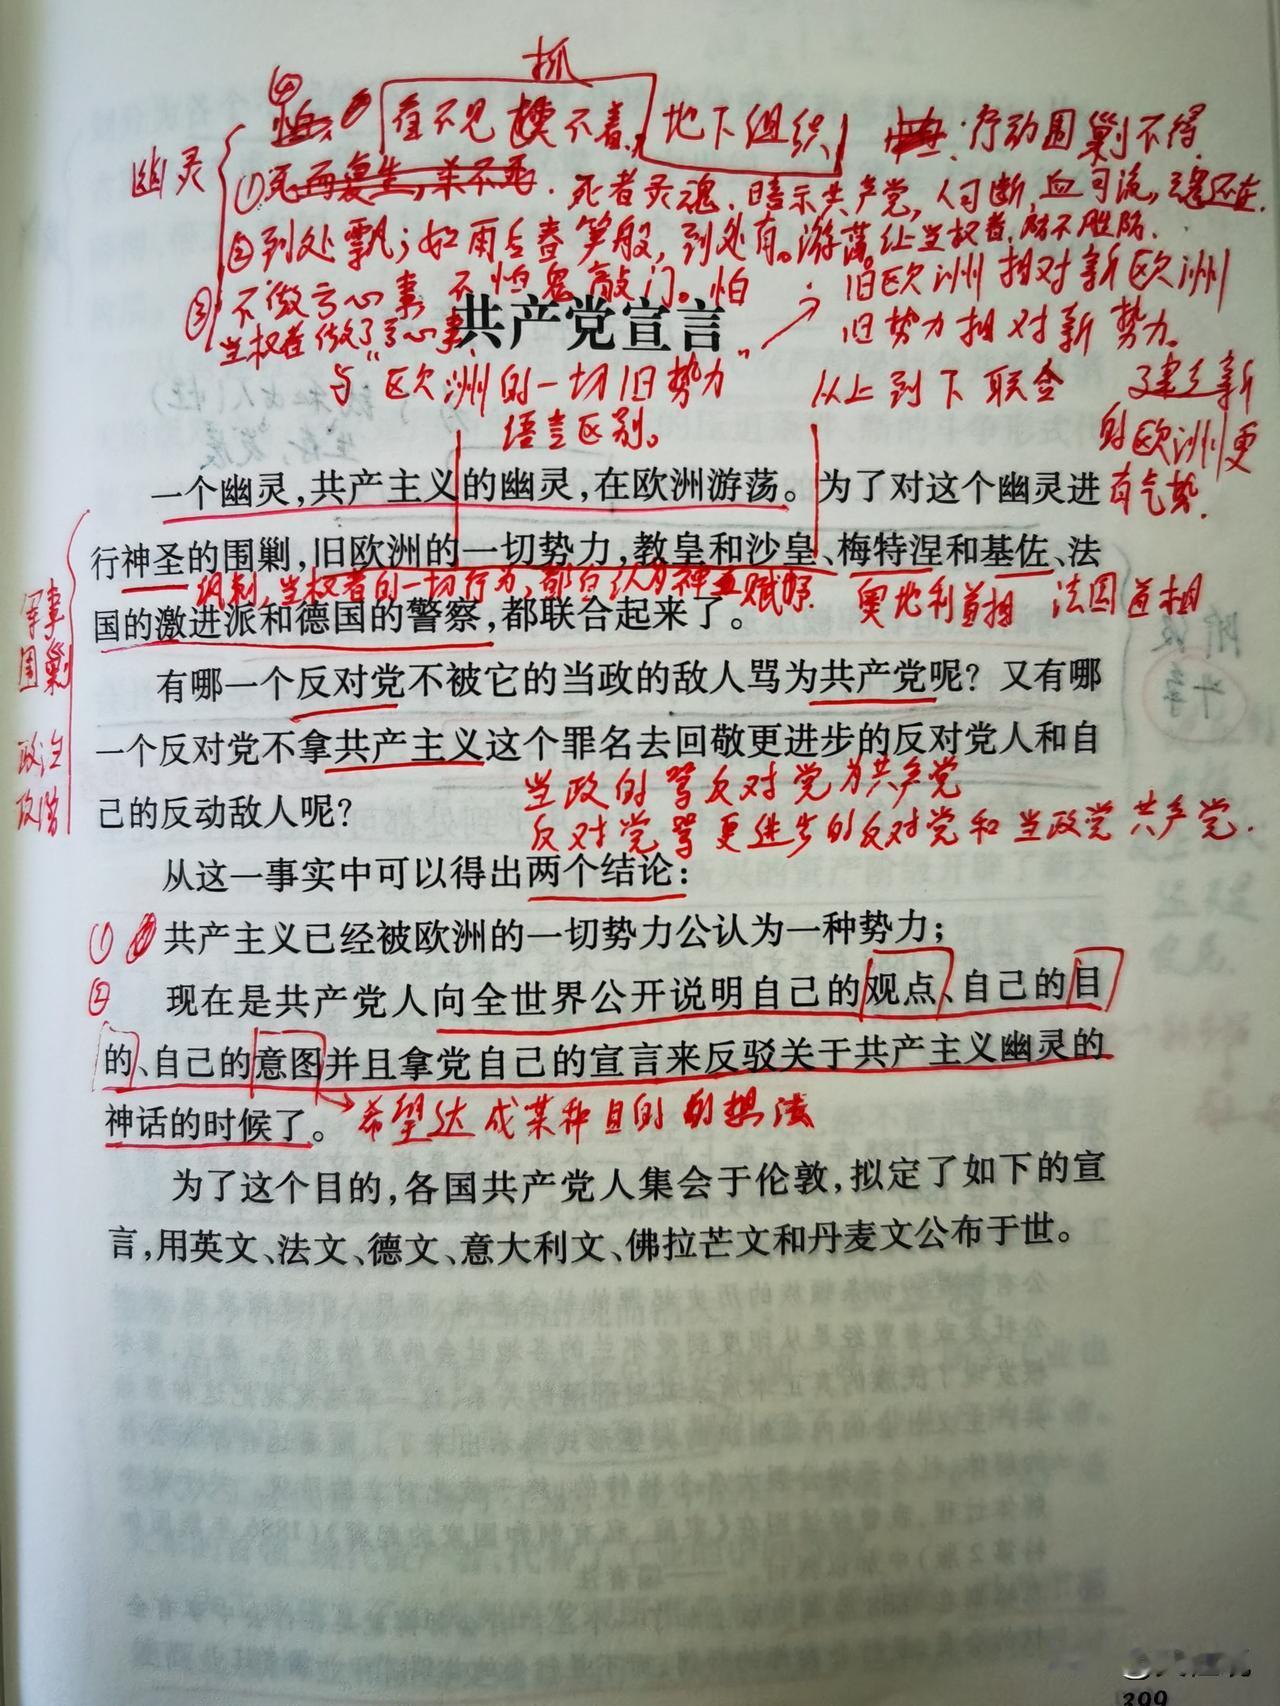 抓
④ 看不见 摸不着, 地下组织 行动围剿不得
幽灵
① 死而复生, 杀不死. 死者灵魂. 暗示共产党, 人可断, 血可流, 魂还在.
② 到处飘; 如雨后春笋般, 到处有。游荡。让当权者, 防不胜防.
③ 不做亏心事 不怕鬼敲门。怕
当权者做了亏心事
旧欧洲相对新欧洲
旧势力相对新势力。
共产党宣言
与“欧洲的一切旧势力”
语言区别。
从上到下联合
建立新
的欧洲更
有气势.
一个幽灵，共产主义的幽灵，在欧洲游荡。为了对这个幽灵进
行神圣的围剿，旧欧洲的一切势力，教皇和沙皇、梅特涅和基佐、法
讽刺, 当权者的一切行为, 都自认为神圣赋予.
奥地利首相 法国首相
国的激进派和德国的警察，都联合起来了。
军事
围剿
政治
攻防
有哪一个反对党不被它的当政的敌人骂为共产党呢？又有哪
一个反对党不拿共产主义这个罪名去回敬更进步的反对党人和自
己的反动敌人呢？
当政的骂反对党为共产党
反对党骂更进步的反对党和当政党共产党.
从这一事实中可以得出两个结论：
① 共产主义已经被欧洲的一切势力公认为一种势力；
② 现在是共产党人向全世界公开说明自己的观点、自己的目
的、自己的意图并且拿党自己的宣言来反驳关于共产主义幽灵的
神话的时候了。
希望达成某种目的的想法
为了这个目的，各国共产党人集会于伦敦，拟定了如下的宣
言，用英文、法文、德文、意大利文、佛拉芒文和丹麦文公布于世。